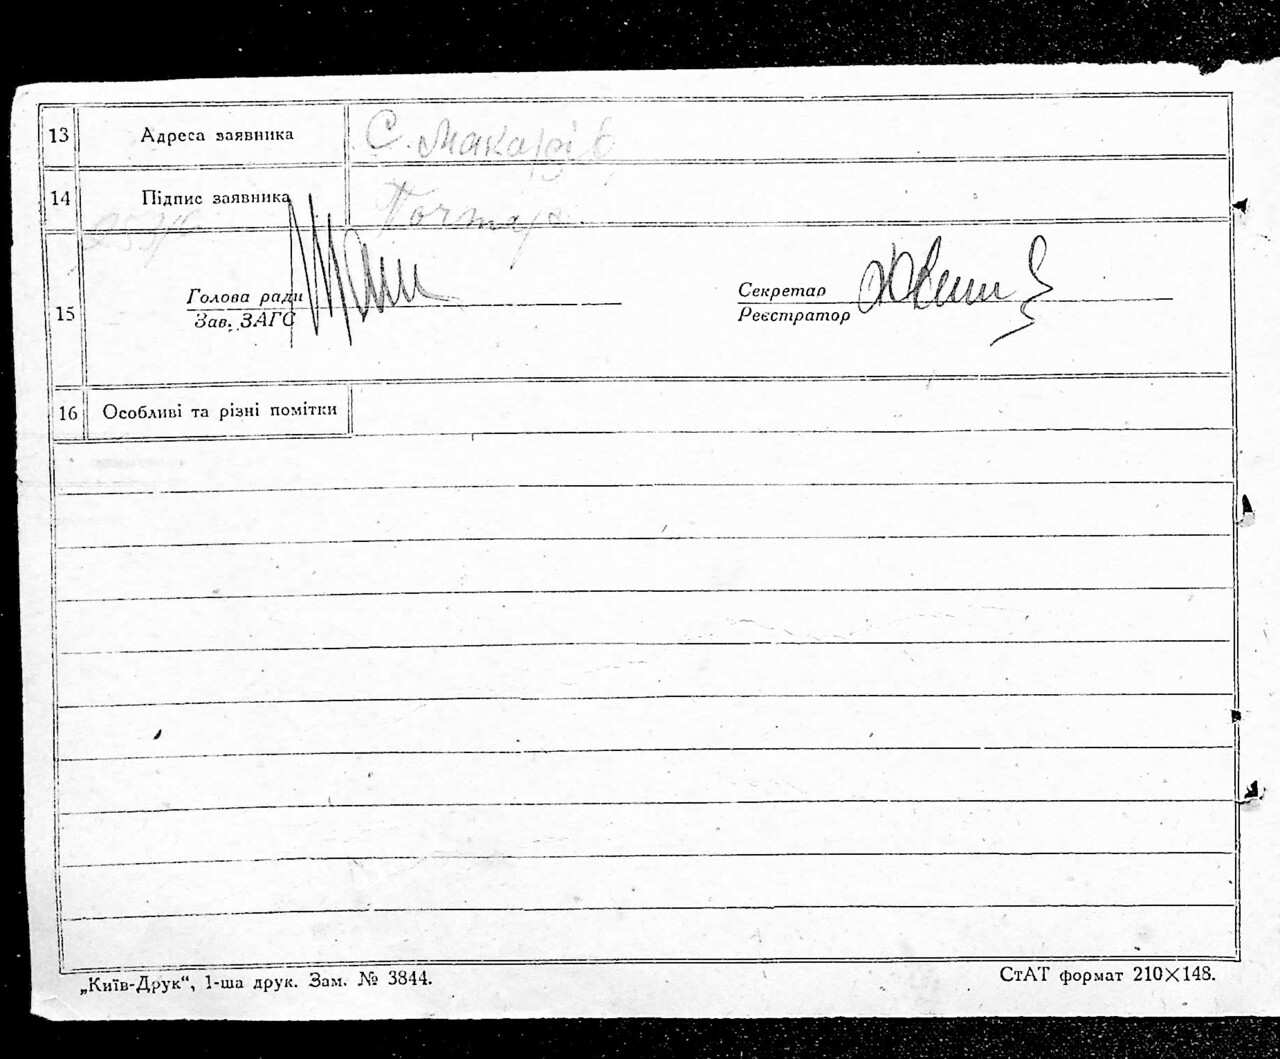 13 Адреса заявника С. Макарів
14 Підпис заявника Почтар
Голова ради
Секретар
15
Зав. ЗАГС
Реєстратор
16 Особливі та різні помітки
„Київ-Друк“, 1-ша друк. Зам. № 3844.
СтАТ формат 210×148.